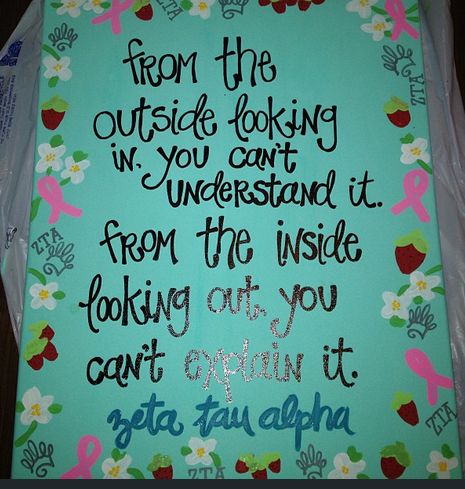 ZTA
from the
outside looking
in. you can't
understand it.
from the inside
looking out. you
can't explain it.
zeta tau alpha
ZTA
ZTA
ZTA
ZTA
ZTA